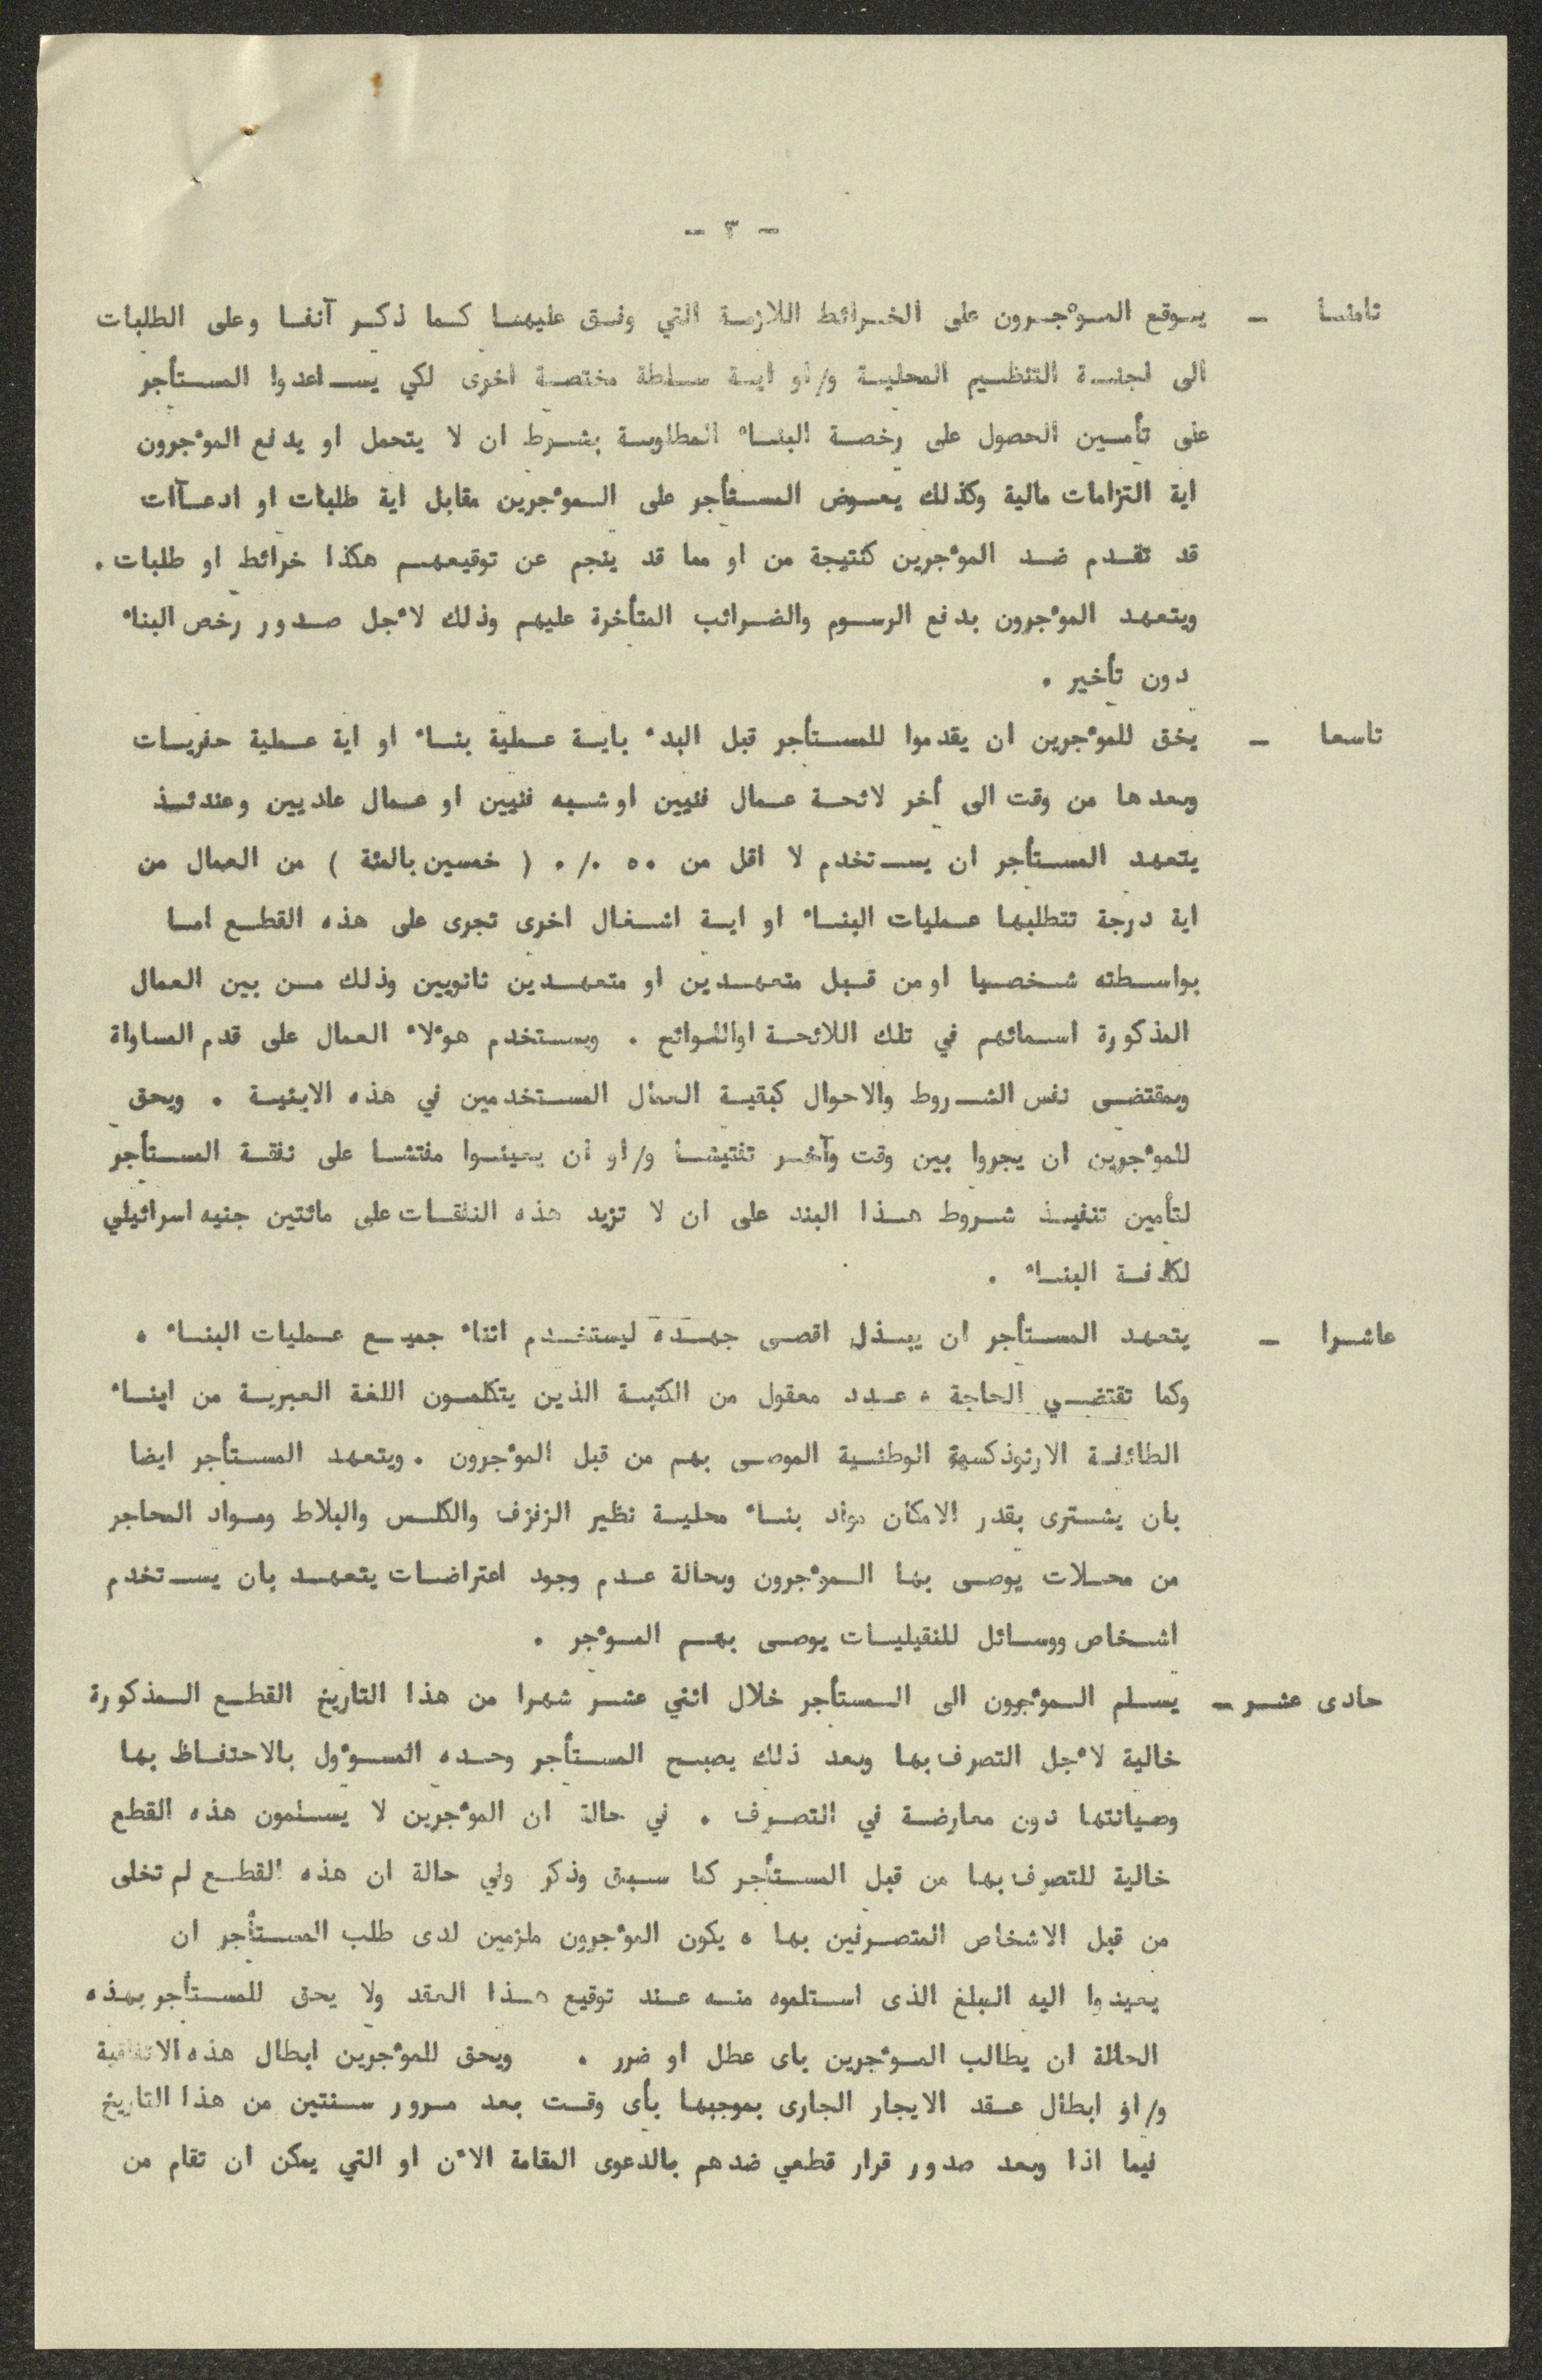 - ٣ -
ثامنا - يوقع المؤجرون على الخرائط اللازمة التي وفق عليها كما ذكر آنفا وعلى الطلبات
الى لجنة التنظيم المحلية و/او اية سلطة مختصة اخرى لكي يساعدوا المستأجر
على تأمين الحصول على رخصة البناء المطلوبة بشرط ان لا يتحمل او يدفع المؤجرون
اية التزامات مالية وكذلك يعوض المستأجر على المؤجرين مقابل اية طلبات او ادعاآت
قد تقدم ضد المؤجرين كنتيجة من او مما قد ينجم عن توقيعهم هكذا خرائط او طلبات .
ويتعهد المؤجرون بدفع الرسوم والضرائب المتأخرة عليهم وذلك لأجل صدور رخص البناء
دون تأخير .
تاسعا - يخق للمؤجرين ان يقدموا للمستأجر قبل البدء باية عملية بناء او اية عملية حفريات
وبعدها من وقت الى أخر لائحة عمال فنيين او شبه فنيين او عمال عاديين وعندئذ
يتعهد المستأجر ان يستخدم لا اقل من ٥٠ ٠/٠ ( خمسين بالمئة ) من العمال من
اية درجة تتطلبها عمليات البناء او اية اشغال اخرى تجرى على هذه القطع اما
بواسطته شخصيا او من قبل متعهدين او متعهدين ثانويين وذلك من بين العمال
المذكورة اسمائهم في تلك اللائحة اواللوائح . ويستخدم هؤلاء العمال على قدم المساواة
وبمقتضى نفس الشروط والاحوال كبقية العمال المستخدمين في هذه الابنية . ويحق
للمؤجرين ان يجروا بين وقت وآخر تفتيشا و/او ان يعينوا مفتشا على نفقة المستأجر
لتأمين تنفيذ شروط هذا البند على ان لا تزيد هذه النفقات على مائتين جنيه اسرائيلي
لكافة البناء .
عاشرا - يتعهد المستأجر ان يبذل اقصى جهده ليستخدم اثناء جميع عمليات البناء ،
وكما تقتضي الحاجة ، عدد معقول من الكتبة الذين يتكلمون اللغة العبرية من ابناء
الطائفة الارثوذكسية الوطنية الموصى بهم من قبل المؤجرون . ويتعهد المستأجر ايضا
بان يشترى بقدر الامكان مواد بناء محلية نظير الزفزف والكلس والبلاط ومواد المحاجر
من محلات يوصى بها المؤجرون وبحالة عدم وجود اعتراضات يتعهد بان يستخدم
اشخاص ووسائل للنقيليات يوصى بهم المؤجر .
حادى عشر - يسلم المؤجرون الى المستأجر خلال اثني عشر شهرا من هذا التاريخ القطع المذكورة
خالية لأجل التصرف بها وبعد ذلك يصبح المستأجر وحده المسؤول بالاحتفاظ بها
وصيانتها دون معارضة في التصرف . في حالة ان المؤجرين لا يسلمون هذه القطع
خالية للتصرف بها من قبل المستأجر كما سبق وذكر وفي حالة ان هذه القطع لم تخلى
من قبل الاشخاص المتصرفين بها ، يكون المؤجرون ملزمين لدى طلب المستأجر ان
يعيدوا اليه المبلغ الذى استلموه منه عند توقيع هذا العقد ولا يحق للمستأجر بهذه
الحالة ان يطالب المؤجرين باى عطل او ضرر . ويحق للمؤجرين ابطال هذه الاتفاقية
و/او ابطال عقد الايجار الجارى بموجبها بأى وقت بعد مرور سنتين من هذا التاريخ
فيما اذا وبعد صدور قرار قطعي ضدهم بالدعوى المقامة الآن او التي يمكن ان تقام من